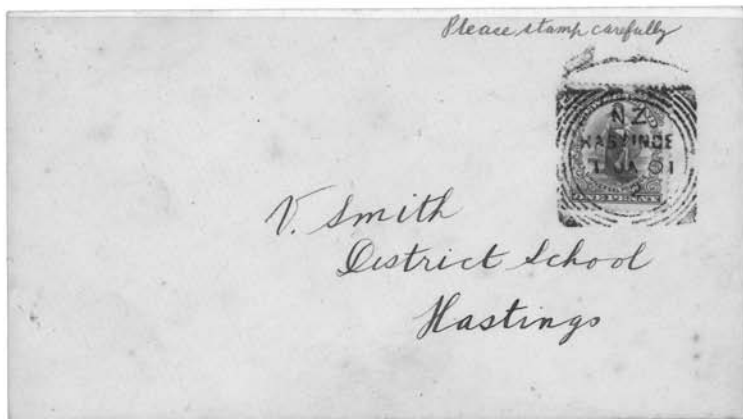 Please stamp carefully
NZ
HASTINGE
1 JA 01
ONE PENNY
V. Smith
District School
Hastings